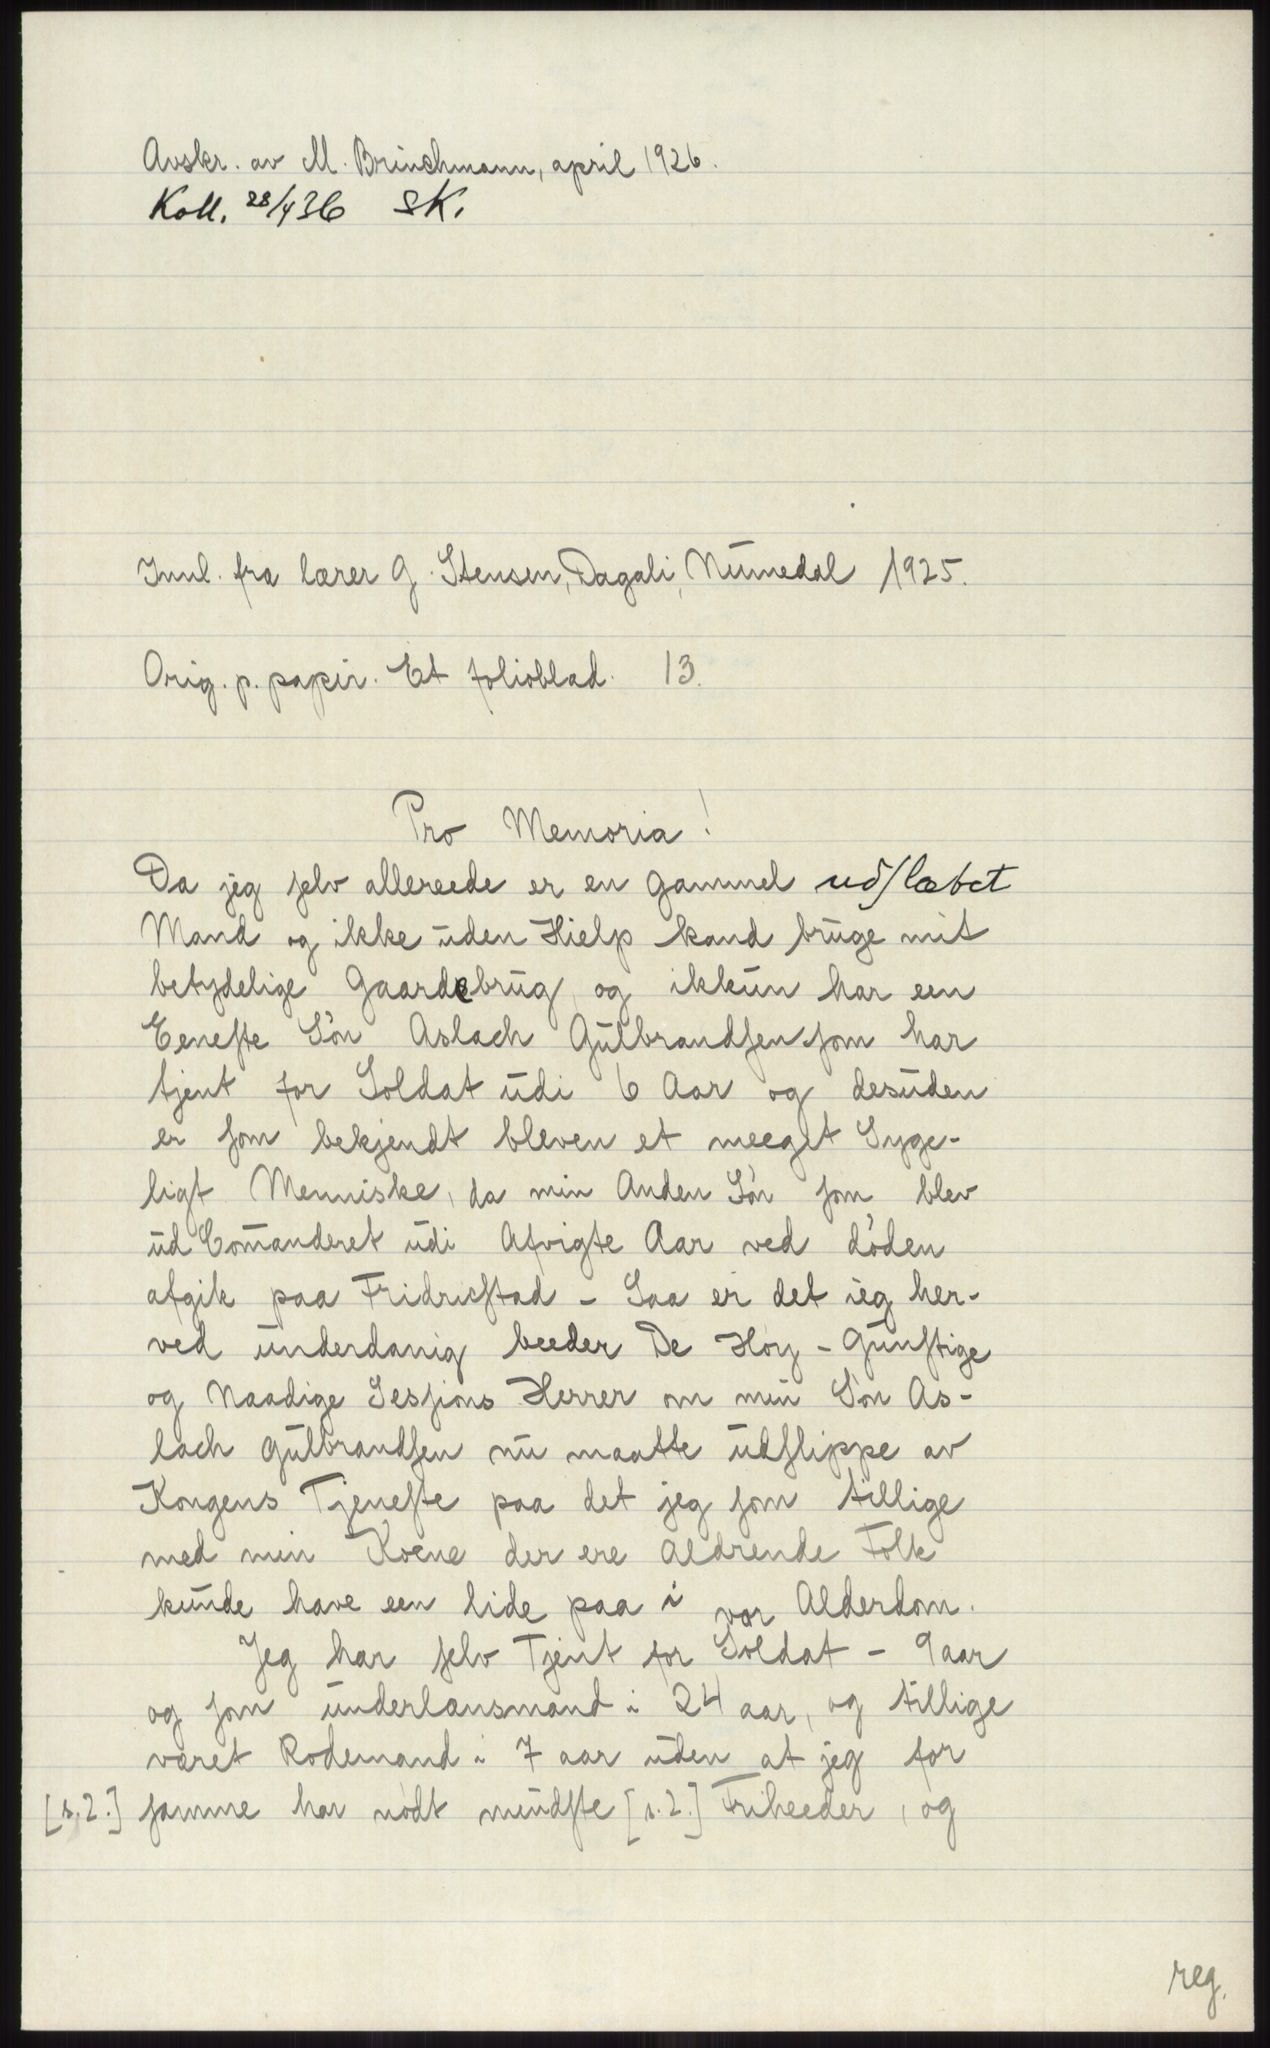 Avskr. av M. Brinchmann, april 1926.
Koll. 28/4 36 SK.
Innl. fra lærer G. Stensen, Dagali, Numedal 1925.
Orig. p. papir. Et folioblad. 13.
Pro Memoria!
Da jeg selv allereede er en gammel udslæbet
Mand og ikke uden Hielp kand bruge mit
betydelige Gaardebrug, og ikkun har een
Eeneste Søn Aslach Gulbrandsen som har
tjent for Soldat udi 6 Aar og desuden
er som bekjendt bleven et meeget Syge-
ligt Menniske, da min Anden Søn som blev
ud Comanderet udi Afvigte Aar ved døden
afgik paa Fridricstad - Saa er det ieg her-
ved underdanig beeder De Høy - Gunstige
og Naadige Sessions Herrer om min Søn As-
lach Gulbrandsen nu maatte udslippe av
Kongens Tjeneste paa det jeg som tillige
med min Koene der ere Aldrende Folk
kunde have een lide paa i vor Alderdom.
Jeg har selv Tjent for Soldat - 9 aar
og som underlænsmand i 24 aar, og tillige
været Rodemand i 7 aar uden at jeg for
[s. 2.] samme har nødt mindste [s. 2.] Friheeder, og
reg.